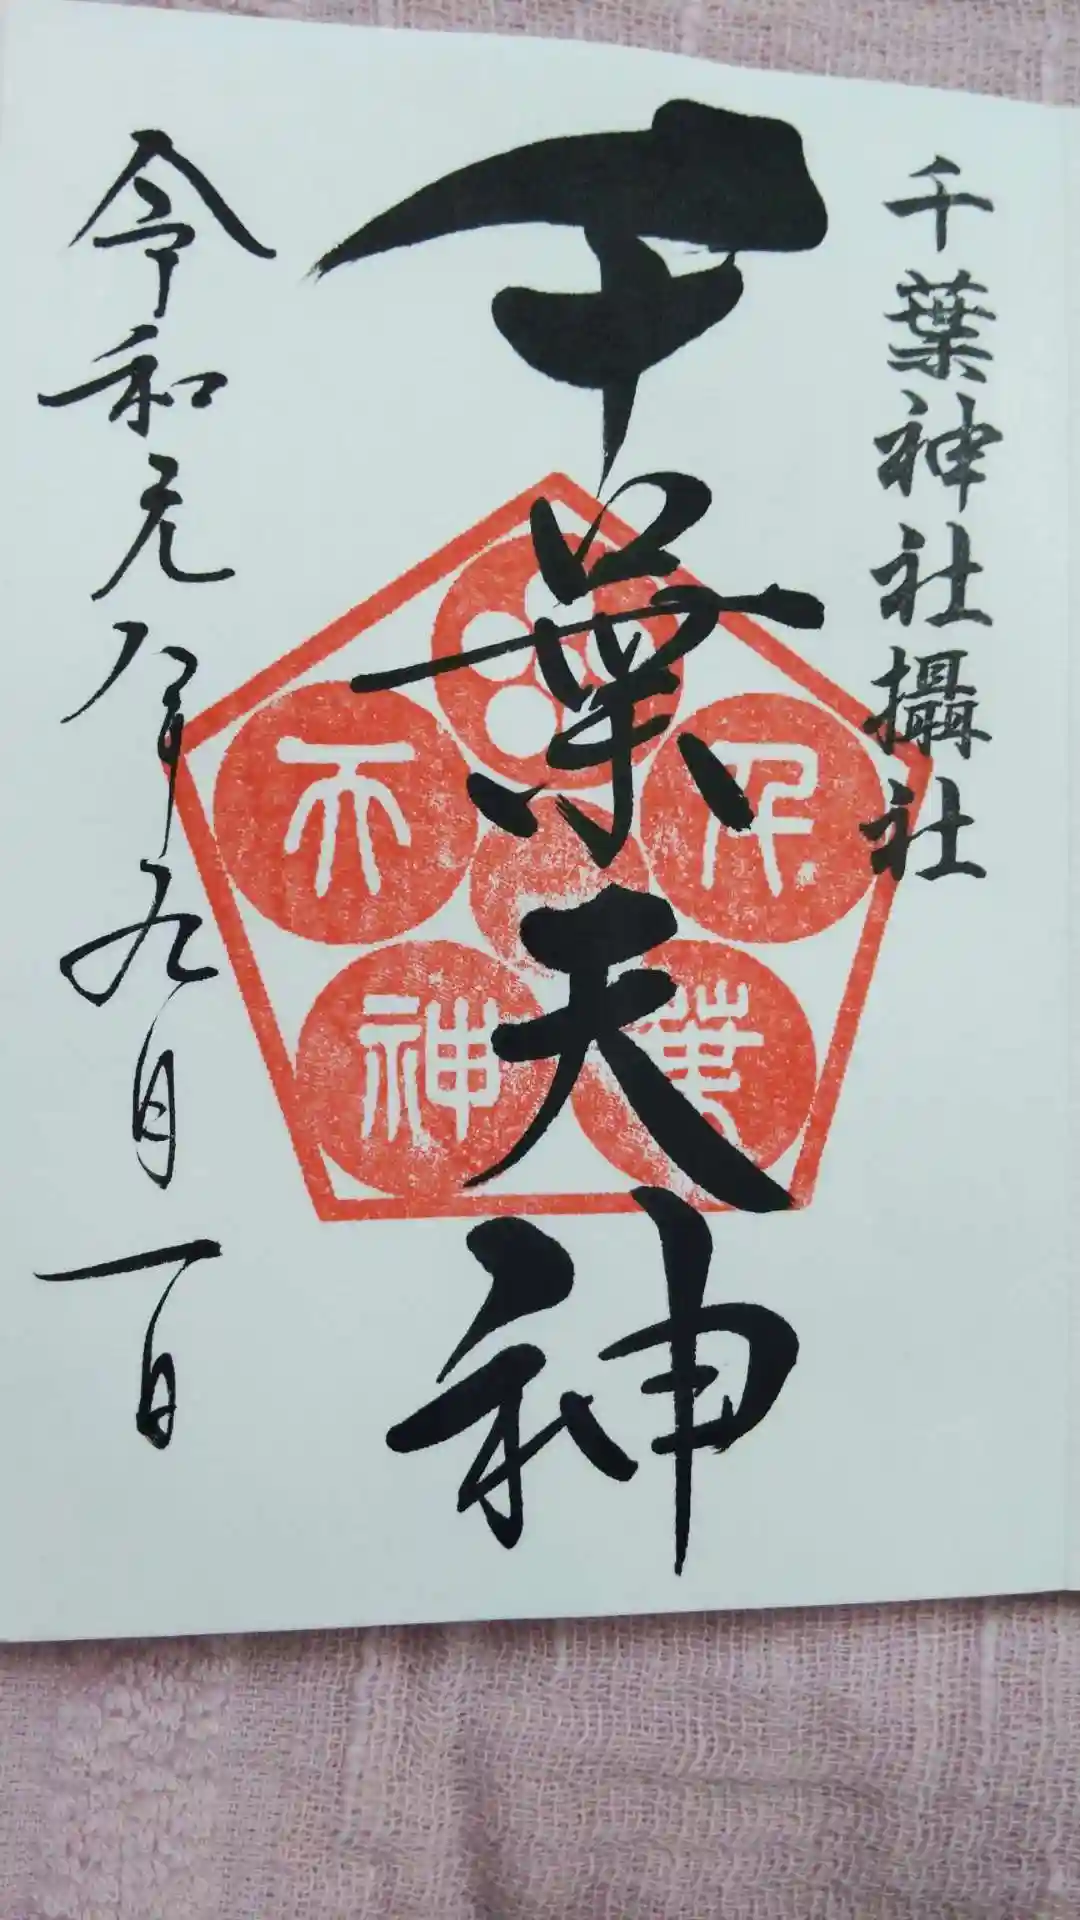 千葉神社攝社
千葉天神
令和元年九月一日
千
葉
天
神